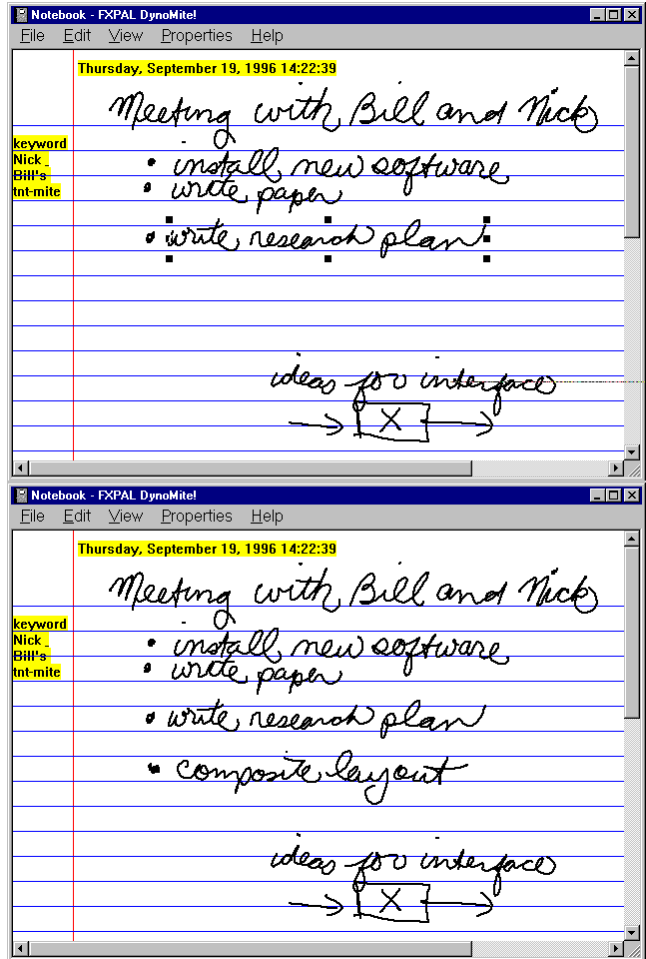 Notebook - FXPAL DynoMite!
File Edit View Properties Help
Thursday, September 19, 1996 14:22:39
Meeting with Bill and Nick
keyword
Nick
Bill's
tnt-mite
• install new software
• write paper
• write research plan
ideas for interface
X
Notebook - FXPAL DynoMite!
File Edit View Properties Help
Thursday, September 19, 1996 14:22:39
Meeting with Bill and Nick
keyword
Nick
Bill's
tnt-mite
• install new software
• write paper
• write research plan
• composite layout
ideas for interface
X